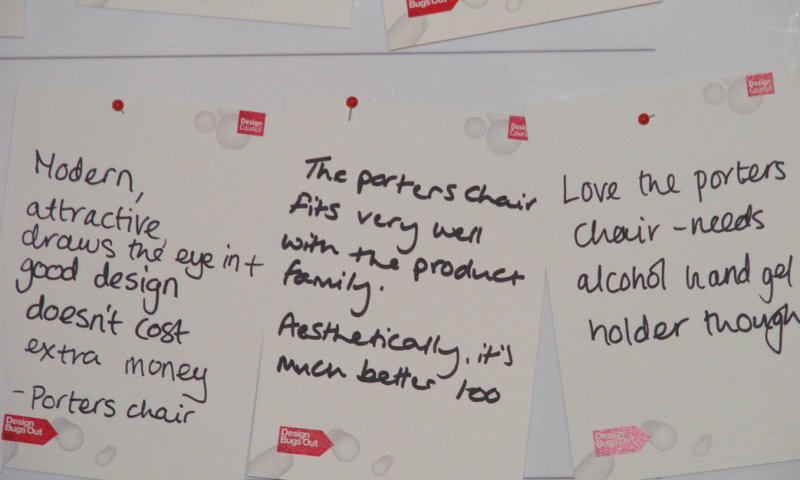 Bugs Out
Design
Council
Modern,
attractive,
draws the eye in +
good design
doesn't cost
extra money
- Porters chair
Design
Bugs Out
Design
Council
The porters chair
fits very well
with the product
family.
Aesthetically, it's
much better too
Design
Bugs Out
Design
Council
Love the porters
chair - needs
alcohol hand gel
holder though
Design
Bugs Out